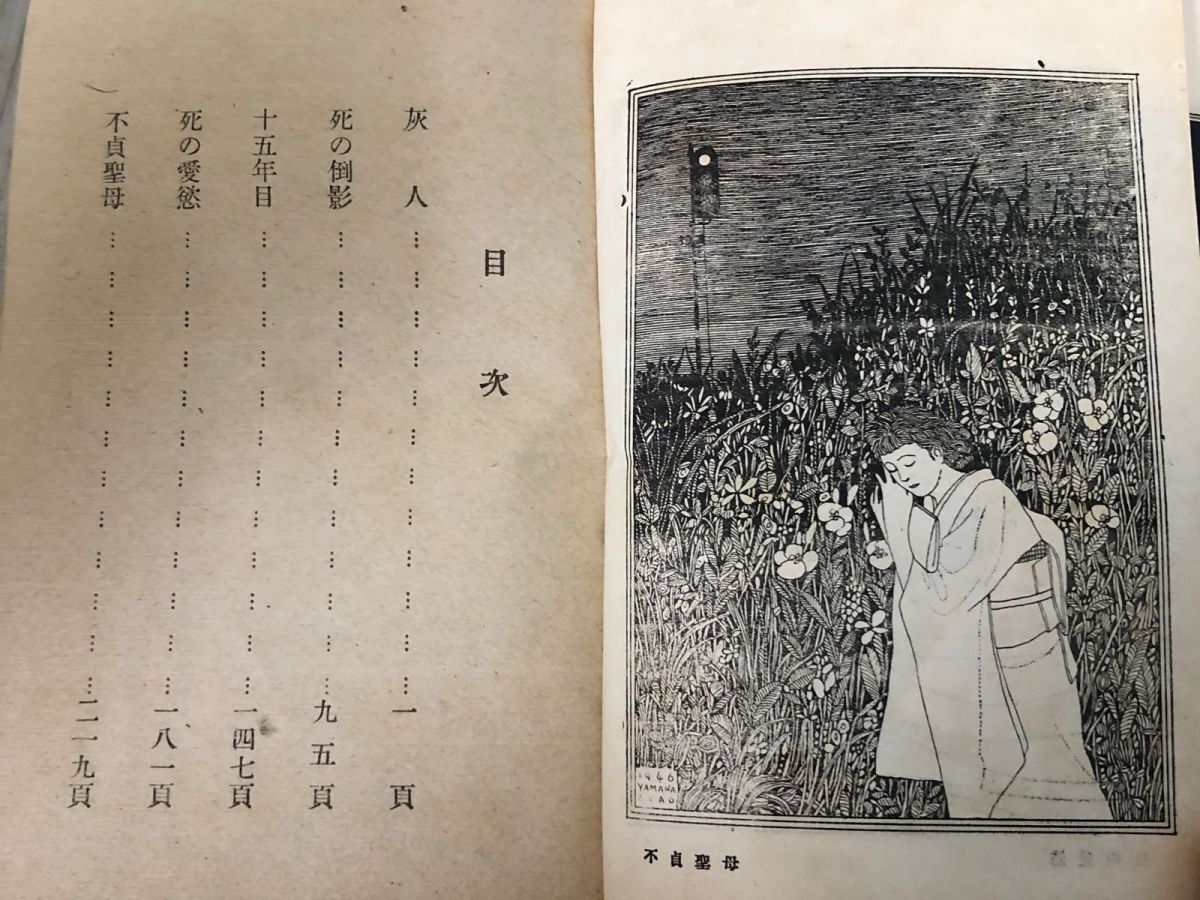 目次
灰人…………………………………一頁
死の倒影…………………………………九五頁
十五年目…………………………………一四七頁
死の愛慾…………………………………一八一頁
不貞聖母…………………………………二一九頁
1946
YAMANA
AO
不貞聖母